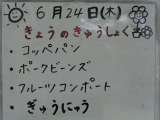 6月24日(木)
きょうのきゅうしょく
・コッペパン
・ポークビーンズ
・フルーツコンポート
・ぎゅうにゅう